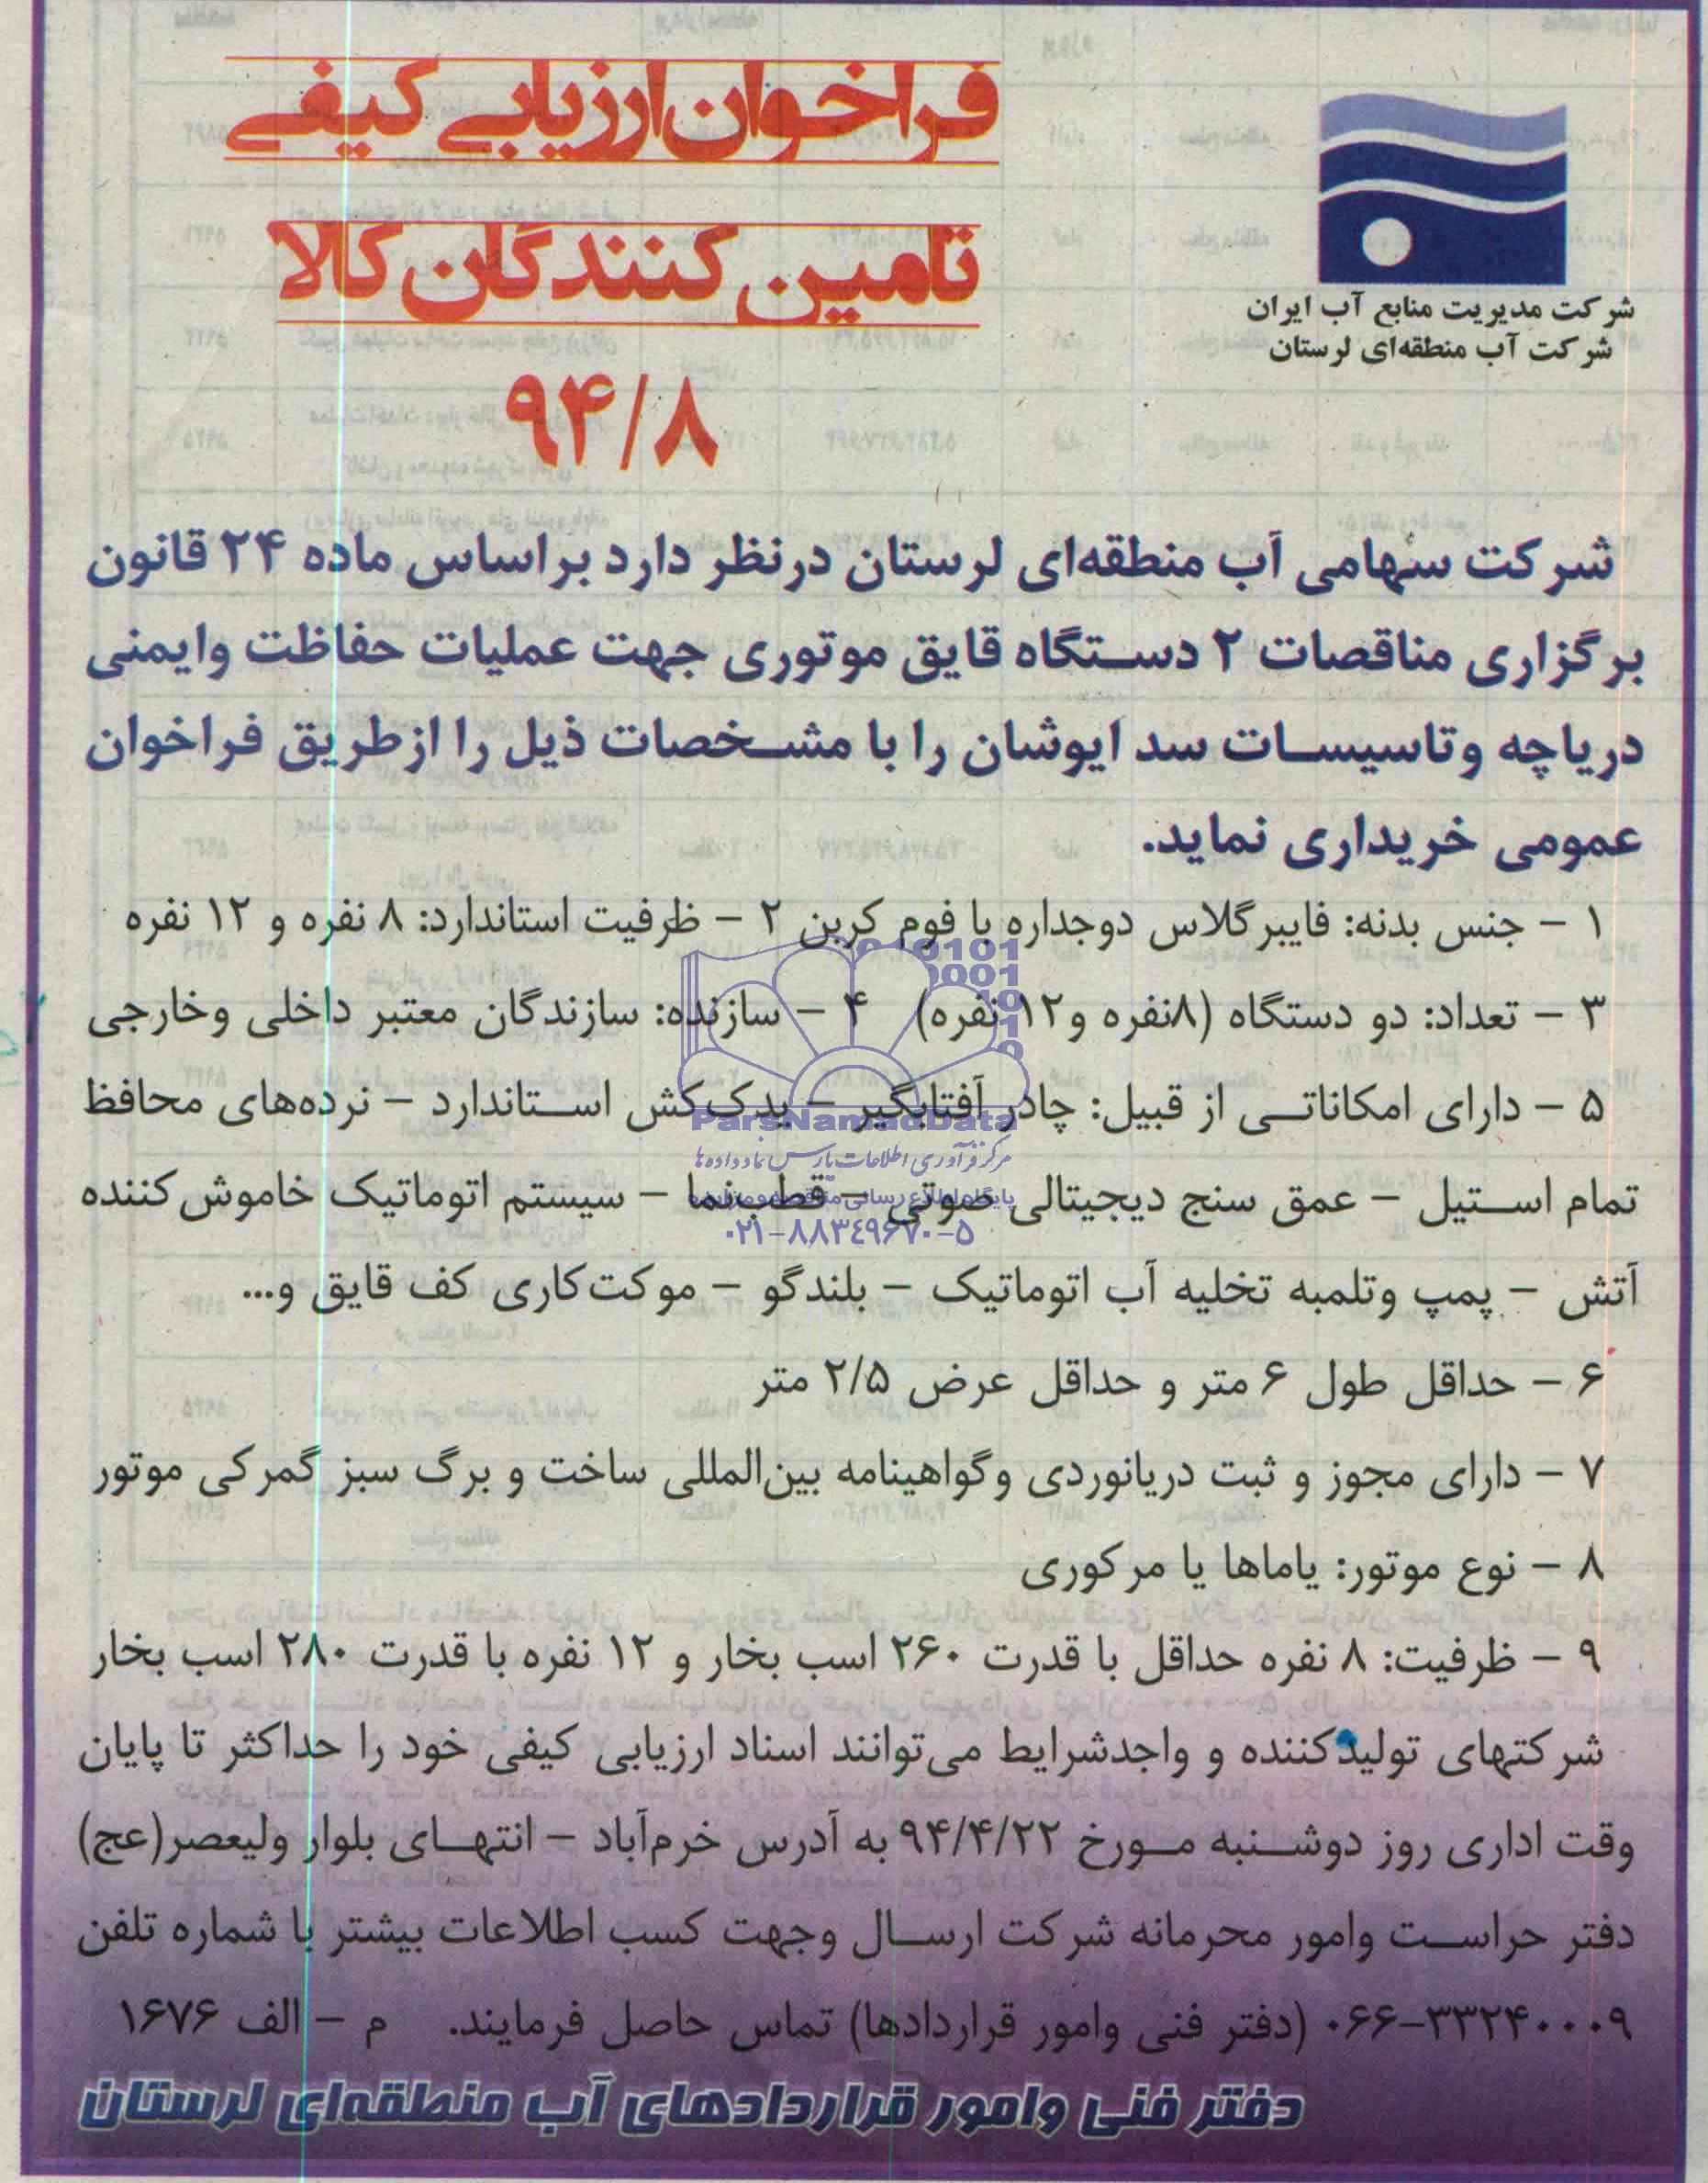 فراخوان ارزیابی کیفی
تامین کنندگان کالا
۹۴/۸
شرکت مدیریت منابع آب ایران
شرکت آب منطقه‌ای لرستان
شرکت سهامی آب منطقه‌ای لرستان درنظر دارد براساس ماده ۲۴ قانون
برگزاری مناقصات ۲ دستگاه قایق موتوری جهت عملیات حفاظت وایمنی
دریاچه وتاسیسات سد ایوشان را با مشخصات ذیل را ازطریق فراخوان
عمومی خریداری نماید.
۱ – جنس بدنه: فایبرگلاس دوجداره با فوم کربن ۲ – ظرفیت استاندارد: ۸ نفره و ۱۲ نفره
۳ – تعداد: دو دستگاه (۸نفره و۱۲ نفره) ۴ – سازنده: سازندگان معتبر داخلی وخارجی
۵ – دارای امکاناتی از قبیل: چادر آفتابگیر – یدک‌کش استاندارد – نرده‌های محافظ
تمام استیل – عمق سنج دیجیتالی صوتی – قطب‌نما – سیستم اتوماتیک خاموش‌کننده
آتش – پمپ وتلمبه تخلیه آب اتوماتیک – بلندگو – موکت‌کاری کف قایق و...
۶ – حداقل طول ۶ متر و حداقل عرض ۲/۵ متر
۷ – دارای مجوز و ثبت دریانوردی وگواهینامه بین‌المللی ساخت و برگ سبز گمرکی موتور
۸ – نوع موتور: یاماها یا مرکوری
۹ – ظرفیت: ۸ نفره حداقل با قدرت ۲۶۰ اسب بخار و ۱۲ نفره با قدرت ۲۸۰ اسب بخار
شرکتهای تولیدکننده و واجدشرایط می‌توانند اسناد ارزیابی کیفی خود را حداکثر تا پایان
وقت اداری روز دوشنبه مورخ ۹۴/۴/۲۲ به آدرس خرم‌آباد – انتهای بلوار ولیعصر(عج)
دفتر حراست وامور محرمانه شرکت ارسال وجهت کسب اطلاعات بیشتر با شماره تلفن
۰۶۶-۳۳۲۴۰۰۰۹ (دفتر فنی وامور قراردادها) تماس حاصل فرمایند. م – الف ۱۶۷۶
دفتر فنی وامور قراردادهای آب منطقه‌ای لرستان
ParsNamadData
مرکز فرآوری اطلاعات پارس نماد داده‌ها
پایگاه اطلاع رسانی مناقصه و مزایده
۰۲۱-۸۸۳۴۹۶۷۰-۵